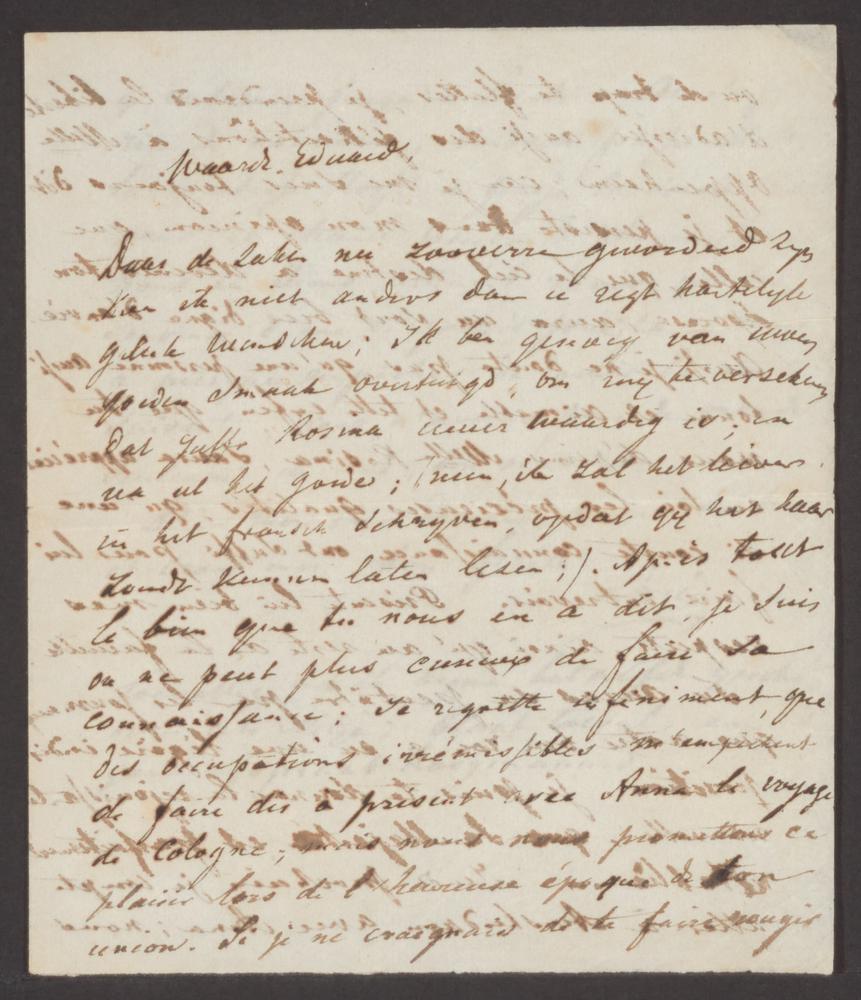 Waarde Eduard,
Daar de zaken nu zooverre gevorderd zyn
kan ik niet anders dan u regt hartelyk
geluk wenschen; Ik ben genoeg van uwen
goeden smaak overtuigd, om my te verzekeren
dat Juffr Rosina uwer waardig is, en
na al het goede; (neen, ik zal het liever
in het fransch schryven, opdat gy het haar
zoudt kunnen laten lesen;). Après tout
le bien que tu nous en a dit, je suis
on ne peut plus curieux de faire sa
connaissance; Je regrette infiniment, que
des occupations irrémissibles m'empechent
de faire dès à présent avec Anna le voyage
de Cologne; mais nous nous promettons ce
plaisir lors de l'heureuse époque de ton
union. Si je ne craignais de te faire rougir